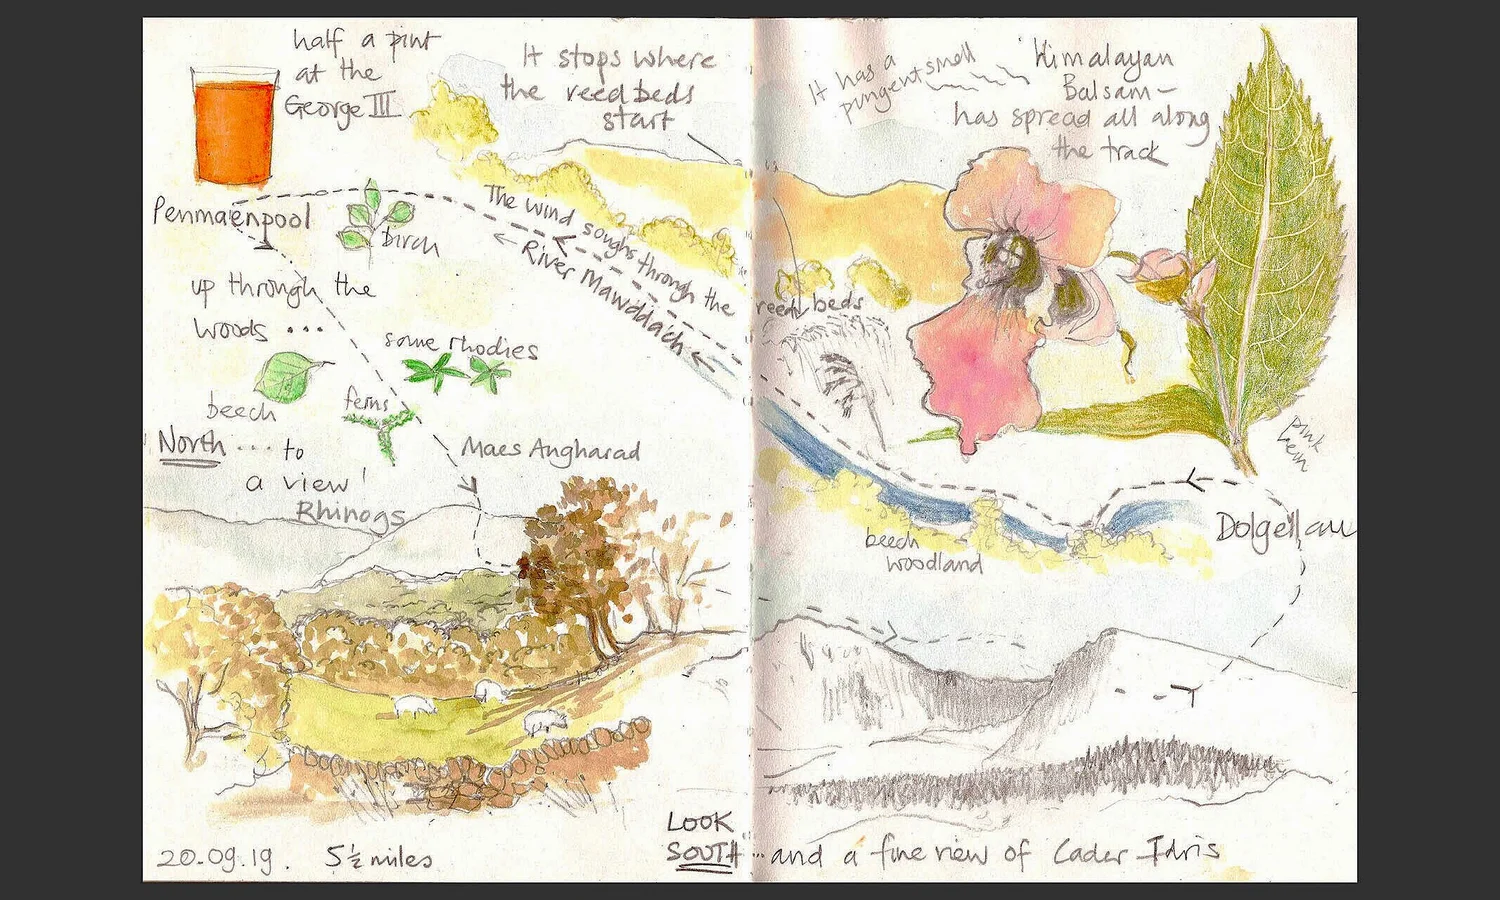 half a pint
at the
George III
It stops where
the reed beds
start
It has a
pungent smell
Himalayan
Balsam -
has spread all along
the track
Penmaenpool
birch
The wind soughs through the
← River Mawddach ←
reed beds
up through the
woods ...
some rhodies
beech
ferns
pink
North ... to
a view!
Rhinogs
Maes Angharad
beech
woodland
Dolgellau
LOOK
SOUTH ... and a fine view of Cader Idris
20.09.19. 5½ miles